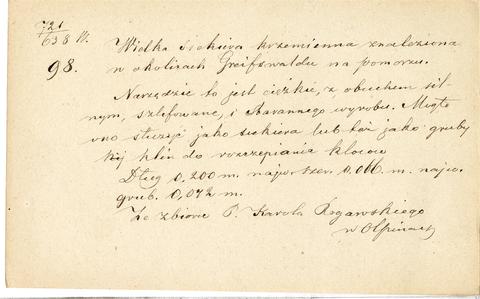 721
658 W.
98.
Wielka siekiera krzemienna znaleziona
w okolicach Greifswaldu na pomorzu.
Narzędzie to jest ciężkie, z obuchem sil-
nym, szlifowane, i starannego wyrobu. Mogło
ono służyć jako siekiera lub też jako gruby
klin do rozczepiania kloców
Dług 0,200 m. najw. szer. 0,066 m. najw.
grub. 0,042 m.
Ze zbioru P. Karola Rogawskiego
w Olpinach